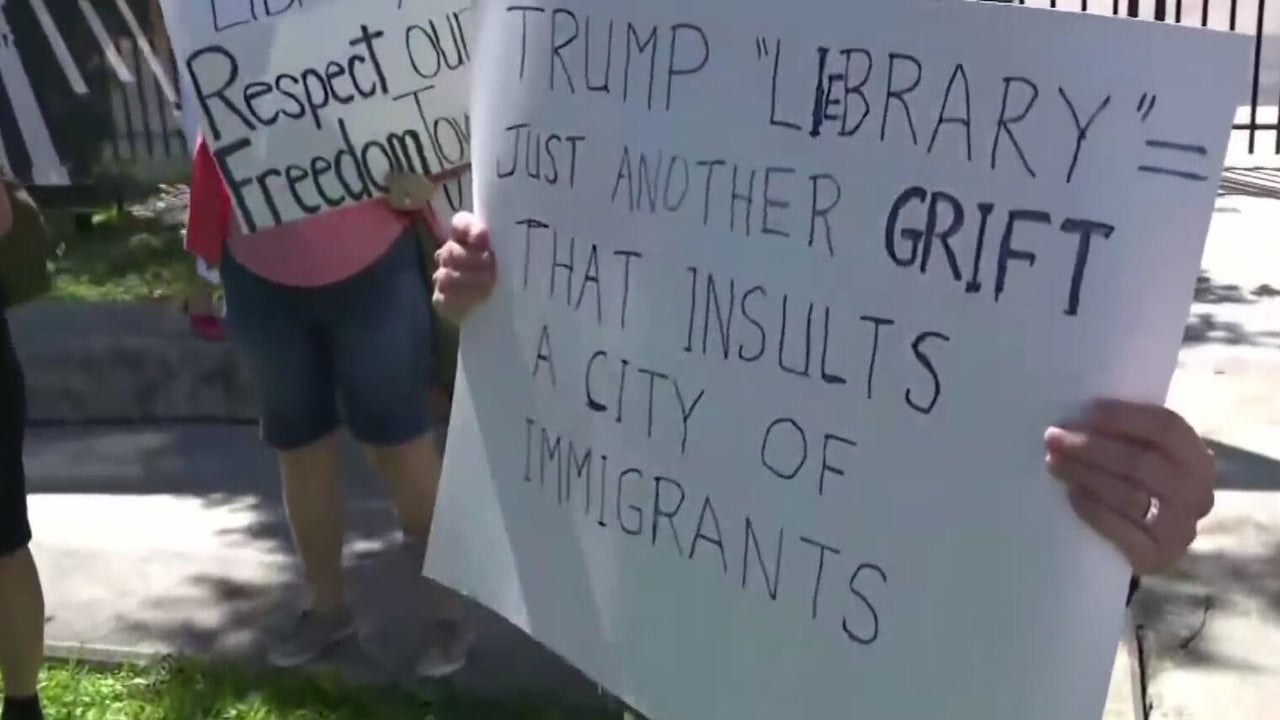 Respect our
Freedom
TRUMP "LIEBRARY" =
JUST ANOTHER GRIFT
THAT INSULTS
A CITY OF
IMMIGRANTS